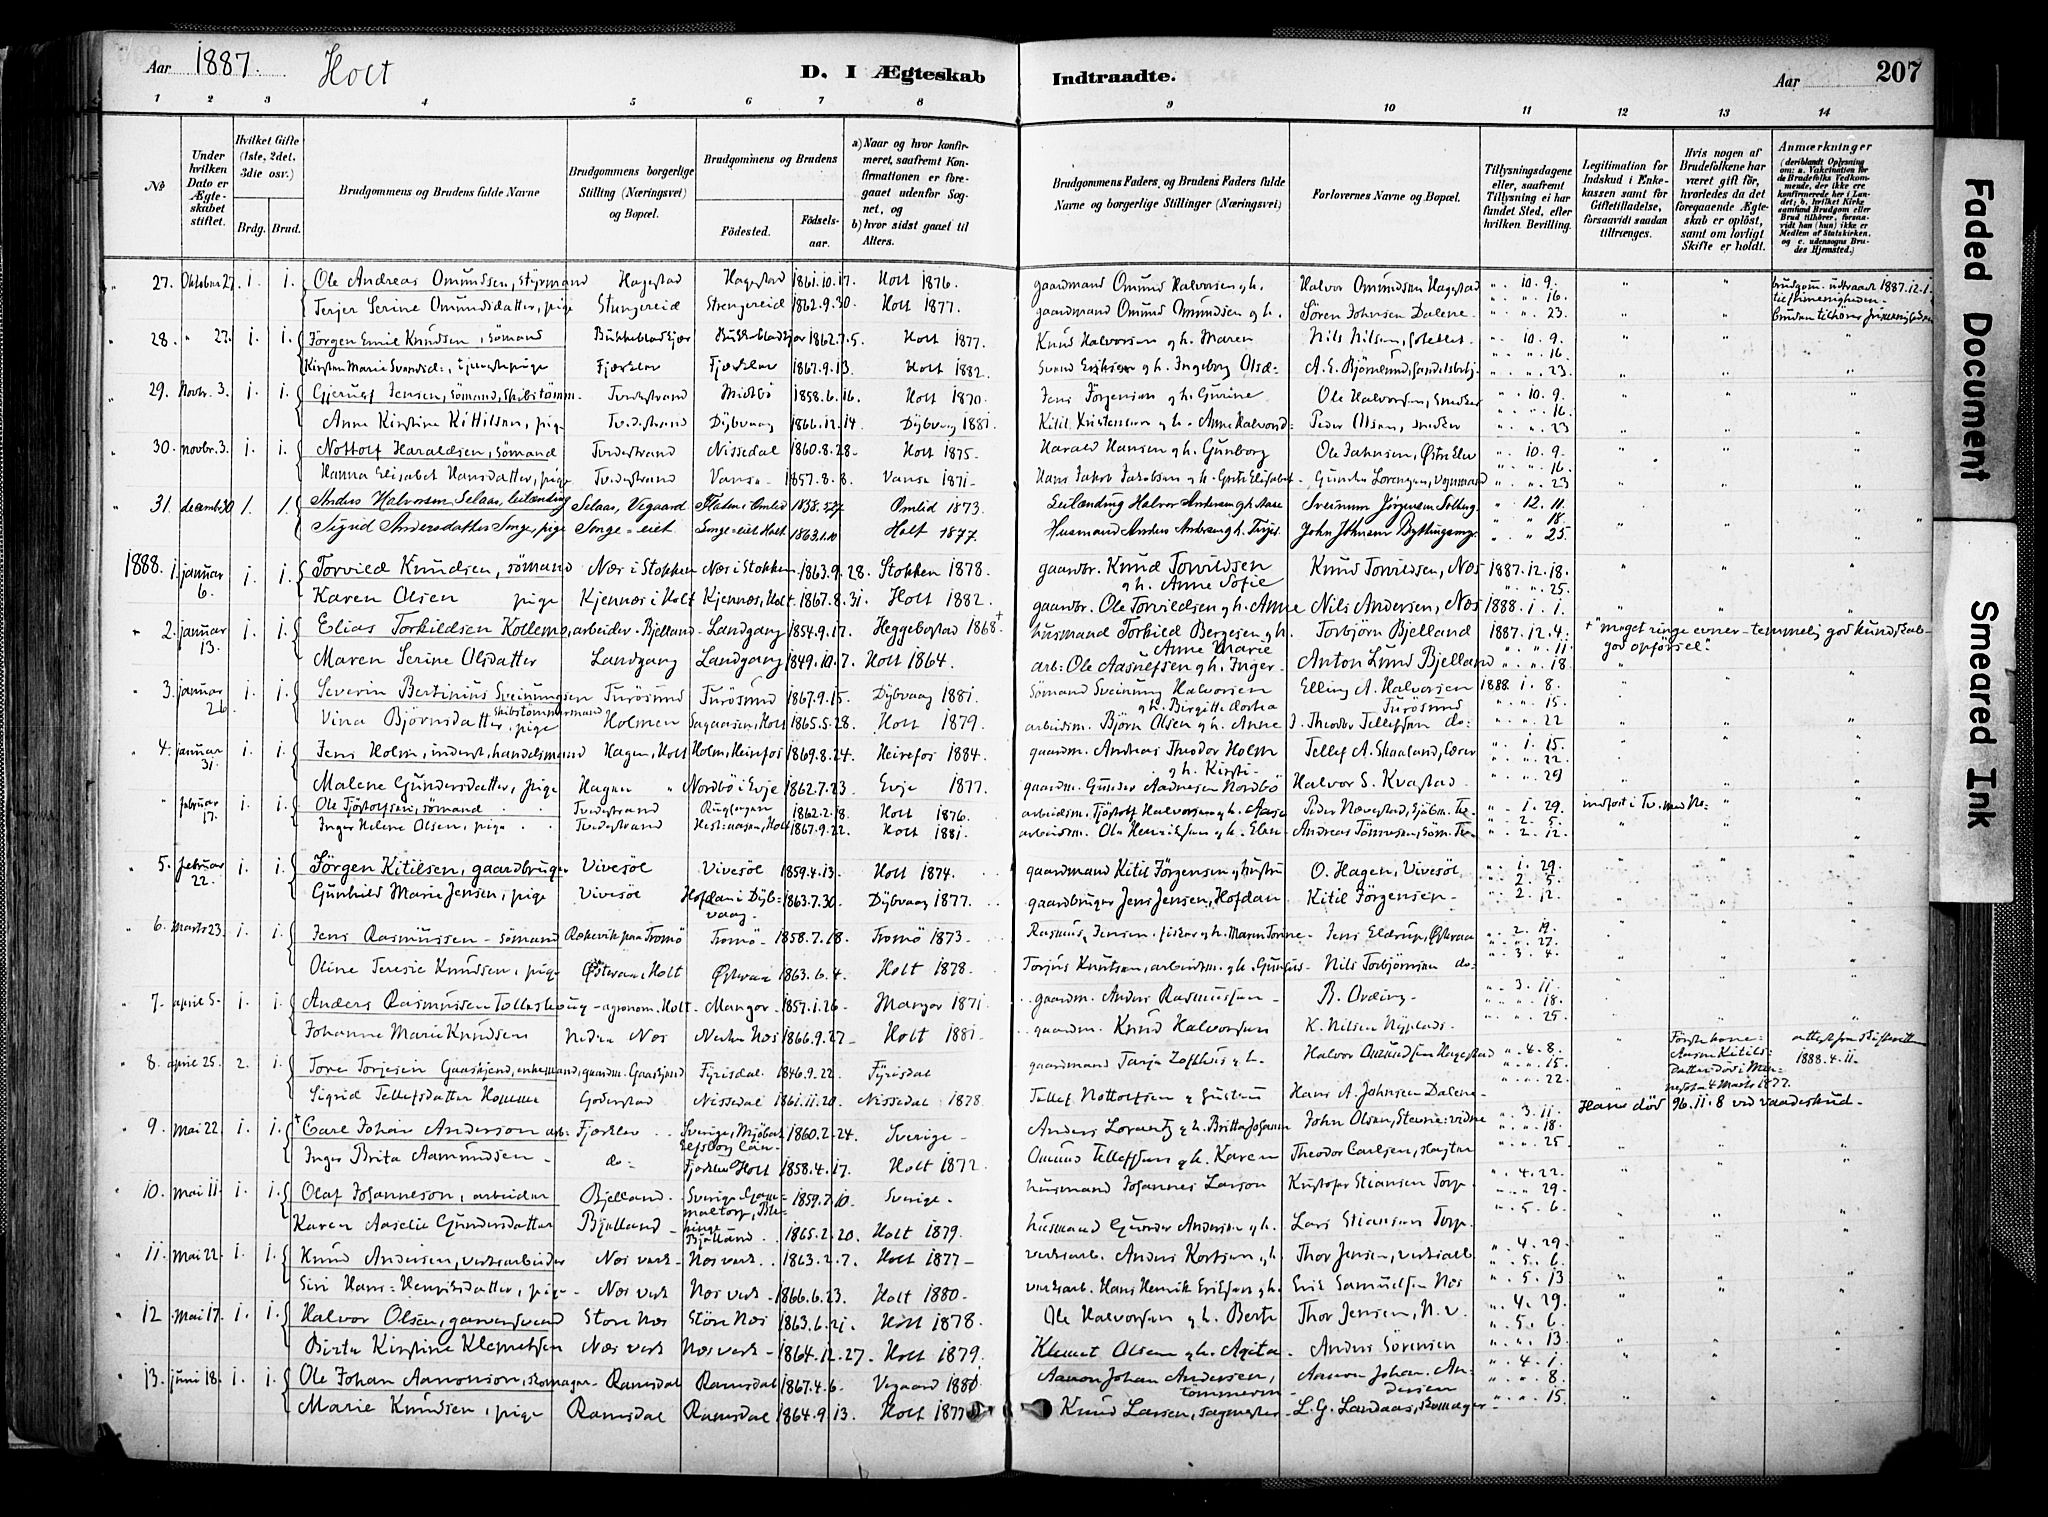 Aar 1887. Holt D. I Ægteskab Indtraadte. Aar 207
1 2 3 4 5 6 7 8 9 10 11 12 13 14
No
Under hvilken Dato er Ægteskabet stiftet.
Hvilket Gifte (1ste, 2det, 3die osv.)
Brdg. Brud.
Brudgommens og Brudens fulde Navne
Brudgommens borgerlige Stilling (Næringsvei) og Bopæl.
Brudgommens og Brudens
Fødested. Fødselsaar.
a) Naar og hvor konfirmeret, saafremt Konfirmationen er foregaaet udenfor Sognet, og
b) hvor sidst gaaet til Alters.
Brudgommens Faders og Brudens Faders fulde Navne og borgerlige Stillinger (Næringsvei)
Forlovernes Navne og Bopæl.
Tillysningsdagene eller, saafremt Tillysning ei har fundet Sted, efter hvilken Bevilling.
Legitimation for Indskud i Enkekassen samt for Giftetilladelse, forsaavidt saadan tiltrænges.
Hvis nogen af Brudefolkene har været gift før, hvorledes da det foregaaende Ægteskab er opløst, samt om lovligt Skifte er holdt.
Anmærkninger
27. Oktober 27. 1. 1. Ole Andreas Omundsen, styrmand Hagestad Hagestad 1861.10.17. Holt 1876. gaardmand Omund Halvorsen g h. Halvor Omundsen Hagestad " 10. 9.
Terjer Serine Omundsdatter, pige Strengereid Strengereid 1862.9.30. Holt 1877. gaardmand Omund Omundsen g h. Sören Johnsen Dalene " 16. " 23.
28. " 27. 1. 1. Jörgen Emil Knudsen, sömand 1862.7.5. Holt 1877. Knud Halvorsen g h. Maren Nils Nilsen, " 10. 9.
Fjærklev Fjærklev 1867.9.13. Holt 1882. Svend Eriksen g h. Ingeborg Olsd- A. E. Björnlund, " 16. " 23.
29. Novbr. 3. 1. 1. Jensen, sömand, Skibstömm. Tvedestrand Midtbö 1858.6.16. Holt 1870. Jens Jörgensen g h. Gurine Ole Halvorsen, snedker " 10. 9.
Anne Kirstine Kittilsen, pige Tvedestrand Dybvaag 1866.12.14 Dybvaag 1881. Kitil Kristensen g h. Anne Halvord- Peder Olsen, snedker " 16. " 23
30. novbr. 3. 1. 1. Nottolf Haraldsen, sömand Tvedestrand Nissedal 1860.8.28. Holt 1875. Harald Hansen g h. Gunborg Ole Jahnsen, Østre Elv " 10. 9.
Hanna Elisabet Hansdatter, pige Tvedestrand Vanse 1857.8.8. Vanse 1871. Hans Jakob Jakobsen g h. Grete Elisabet Gunder Lorengen, vognmand " 16. " 23
31. decembr 30 1. 1. Anders Halvorsen Selaas, leilænding Selaas, Vegaard Flaten i Omlid 1858.5.27 Omlid 1873. Leilænding Halvor Andersen g h Aase Sveinum Jörgensen Solberg " 12. 11.
Sigrid Andersdatter Songe, pige Songe-eiet Songe-eiet Holt 1863.1.10 Holt 1877. Husmand Anders Andersen g h. John Johnsen " 18. " 25.
1888. 1. januar 6. 1. 1. Torvild Knudsen, sömand Næs i Stokken Næs i Stokken 1863.9.28. Stokken 1878. gaardbr. Knud Torvildsen g h. Anne Sofie Knud Torvildsen, Næs 1887.12.18. " 25.
Karen Olsen pige Kjennæs i Holt Kjennæs, Holt 1867.8.31. Holt 1882. gaardbr. Ole Torvildsen g h. Anne Nils Andersen, Næs 1888. 1. 1.
2. januar 13. 1. 1. Elias Torkildsen Kollemo, arbeider - Bjelland - Landgang 1854.9.17. Heggebostad 1868+ husmand Torkild Bergesen g h. Anne Marie Torbjörn Bjelland 1887.12.4. +"meget ringe evner - temmelig god kundskab - god opförsel".
Maren Serine Olsdatter Landgang Landgang 1849.10.7. Holt 1864. arb: Ole Aasulfsen g h. Inger Anton Lund Bjelland " 11. " 18.
3. januar 26. 1. 1. Severin Bertinius Sveinungsen Skibstömmermand Furösund Furösund 1867.9.15. Dybvaag 1881. Sömand Sveinung Halvorsen g h. Birgitte Dorthea Elling A. Halvorsen Furösund 1888. 1. 8. " 15.
Vina Björnsdatter, pige Holmen Sagaasen, Holt 1865.5.28. Holt 1879. arbeidsm. Björn Olsen g h. Anne J. Theodor Tellefsen do- " 22
4. januar 31. 1. 1. Jens Holm, inderst, handelsmand Hagen, Holt Holm, Heirefos 1869.8.24. Heirefos 1884. gaardm. Andreas Theodor Holm g h. Kirsti- Tellef A. Skaaland, " 1. 15. " 22.
Malene Gundersdatter, pige Hagen " Nordbö i Evje 1862.7.23. Evje 1877. gaardm. Gunder Aadnesen Nordbö Halvor S. Kvastad " 29
" februar 17. 1. 1. Ole Tjöstolfsen, sömand Tvedestrand 1862.2.18. Holt 1876. arbeidsm. Tjöstolf Halvorsen g h. Aase " 1. 29. indfört i Tv.
Inger Helene Olsen, pige Tvedestrand 1867.9.22. Holt 1881. arbeidsm. Ole Henriksen g h. Elen Andreas Tönnesen, Söm. Tv- " 2. 5. " 2. 12.
5. februar 22. 1. 1. Jörgen Kitilsen, gaardbruger Vivesöl Vivesöl 1859.4.13. Holt 1874. gaardmand Kitil Jörgensen g hustru O. Hagen, Vivesöl " 1. 29. " 2. 5.
Gunhild Marie Jensen, pige Vivesöl Hofdan i Dybvaag 1863.7.30. Dybvaag 1877. gaardbruger Jens Jensen, Hofdan Kitil Jörgensen " 2. 12.
6. Marts 23. 1. 1. Jens Rasmussen - sömand Tromö Tromö 1858.7.18. Tromö 1873. Rasmus Jensen, fisker g h. Maren Torine Jens Eldrup, Østeraa " 2. 19. " 27.
Oline Teresie Knudsen, pige Østeraa, Holt Østeraa 1863.6.4. Holt 1878. Torjus Knutsen, arbeidsm. g h. Nils Torbjörnsen do- " 3. 4.
7. april 5. 1. 1. Anders Rasmussen - agronom. Holt Manger 1857.1.26. Manger 1871 gaardm. Anders Rasmussen B. Ording " 3. 11. " 18.
Johanne Marie Knudsen Nedre Næs Nedre Næs 1866.9.27. Holt 1881. gaardm. Knud Halvorsen K. Nilsen " 25.
8. april 25. 2. 1. Tore Torjesen Gaaskjend, enkemand, gaardm. Gaaskjend Fyrisdal 1846.9.22. Fyrisdal gaardmand g h. Halvor Omundsen Hagestad " 4. 8. " 15. Förste kone: Kitilsdatter död 4 Marts 1877. attest fra skifteretten 1888.4.11.
Sigrid Tellefsdatter Homme Goderstad Nissedal 1861.11.20. Nissedal 1878. Tellef Nottolfsen g hustru Hans A. Johnsen Dalene " 22.
9. Mai 22. 1. 1. +Carl Johan Anderson arb. Fjærklev Sverige, 1860.2.24. Sverige Anders Lorentz g h. Britta Johanna John Olsen, " 3. 11. " 18. Hans död 96.11.8 ved vaadeskud.
Inger Brita Aamundsen do- Fjærklev Holt 1858.4.17. Holt 1872. Omund Tellefsen g h. Karen Theodor Carlsen, " 25.
10. Mai 11. 1. 1. Olaf Johanneson, arbeider Bjelland Sverige 1859.7.10. Sverige husmand Johannes Larson Kristofer Stiansen Torp " 4. 22. " 29.
Karen Aaselie Gundersdatter Bjelland Bjelland 1865.2.20. Holt 1879. husmand Gunder Andersen g h. Lars Stiansen Torp " 5. 6.
11. Mai 22. 1. 1. Knud Andersen, verksarbeider Næs verk Næs verk 1863.2.7. Holt 1877 verksarb. Anders g h. Thor Jensen, verksarb " 4. 29. " 5. 6.
Siri Hans-Henriksdatter, pige Næs verk Næs verk 1866.6.23. Holt 1880. verksarb. Hans Henrik Eriksen g h. Erik Samuelsen Næs " 5. 13
12. Mai 17. 1. 1. Halvor Olsen, garversvend Store Næs Store Næs 1863.6.21. Holt 1878. Ole Halvorsen g h. Berte Thor Jensen, N. v. " 4. 29. " 5. 6.
Birte Kirstine Klemetsen Næs verk Næs verk 1864.12.27. Holt 1879. Klemet Olsen g h. Anders Sörensen " 13
13. juni 18. 1. 1. Ole Johan Aaronson, skomager Ramsdal Ramsdal 1867.4.6. Vegaard 1881 Aaron Johan Andersen, tömmerm Aaron Johan Andersen " 4. 1. " 8.
Marie Knudsen, pige Ramsdal Ramsdal 1864.9.13. Holt 1877 Knud Larsen, sagmester L. G. Landaas, skomager " 15.
Faded Document
Smeared Ink